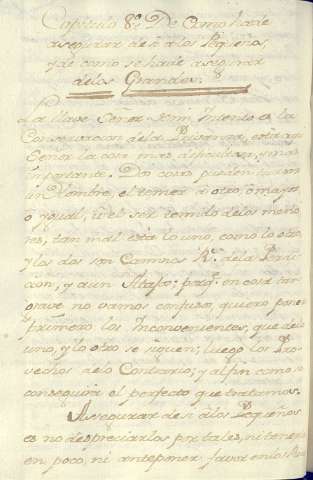 Capitulo 8º De Como hade
asegurar de si a los Pequeños,
y de como se hade asegurar
de los Grandes.
La llave Señor de mi Intento es la
Conservacion de la Privanza, esta es
Señor la cosa mas dificultosa, y mas
importante. Dos cosas pueden
un Hombre, el temer a otro, ò mayor,
ò ygual; ù el ser temido de los meno-
res, tan mal està lo uno, como lo otro,
y los dos son Caminos Rs. de la Perdi-
cion, y aun Atajo; para que en cosa tan
grave no vamos confusos, quiero poner
primero los Inconvenientes, que de lo
uno, y lo otro se siguen; luego los Pro-
vechos de lo Contrario; y al fin como se
conseguirà el perfecto que tratamos.
Asegurar de si a los Pequeños
es no despreciarlos por tales, ni tener
en poco, ni anteponer, favor en los